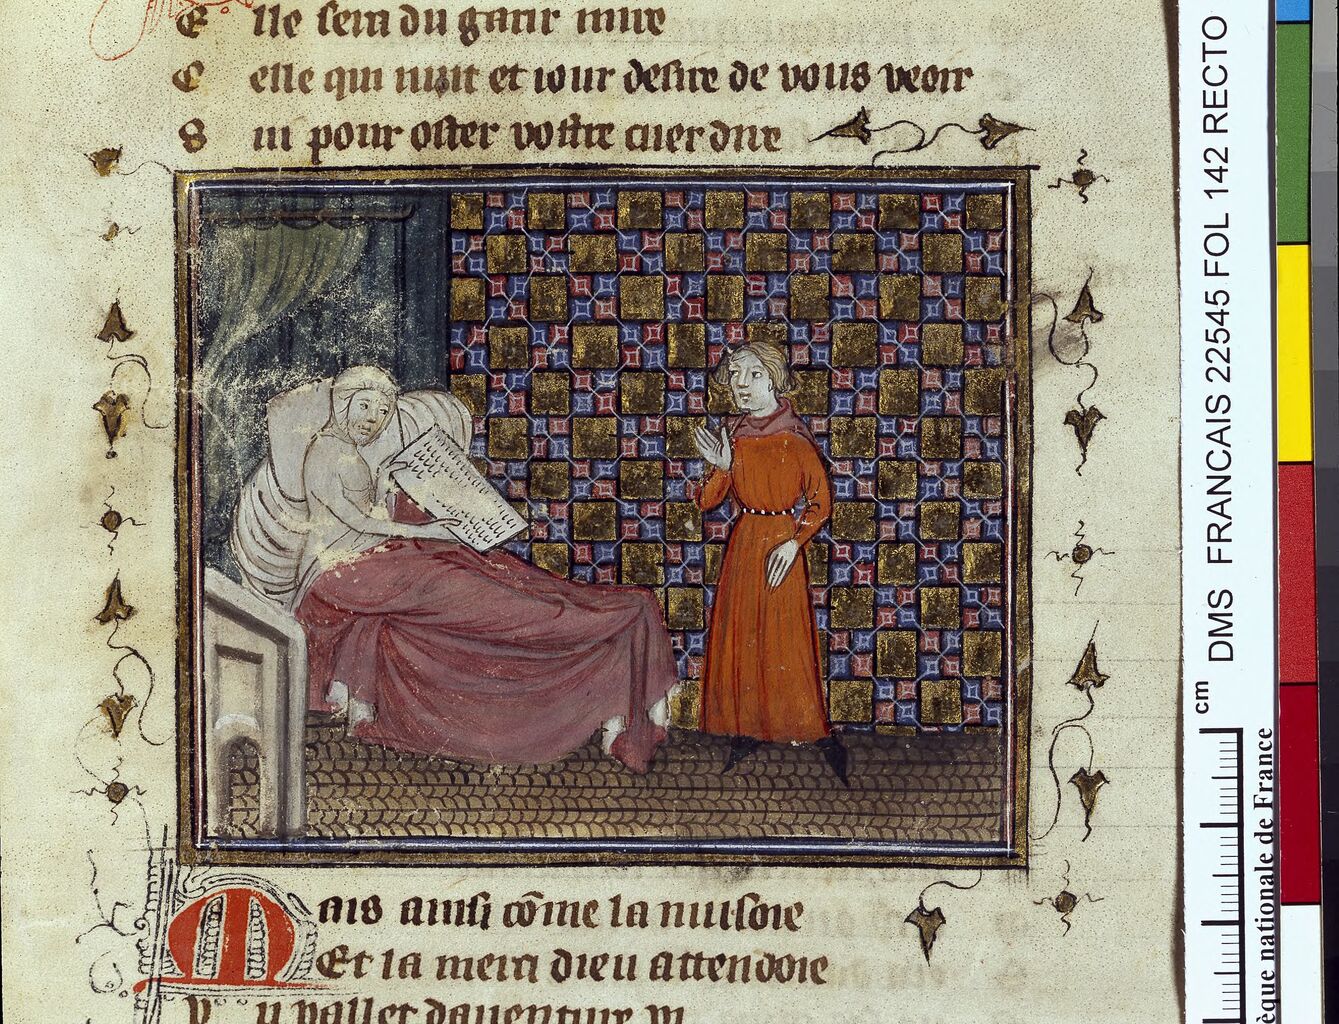 E lle sera du garir mire
C elle qui nuit et iour desire de vous veoir
S ui pour oster vostre cuer dire
M ais ainsi cõme la muisoie
Et la merci dieu attendoie
DMS FRANCAIS 22545 FOL 142 RECTO
cm
èque nationale de France